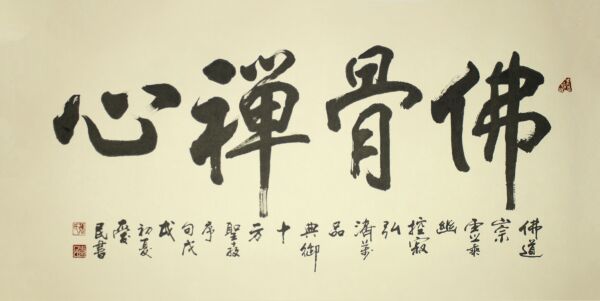 佛骨禪心
佛道
崇
虛乘
幽
控寂
弘
濟萬
品
典御
十
方
聖教
序
句戊
戌
初夏
慶
民書